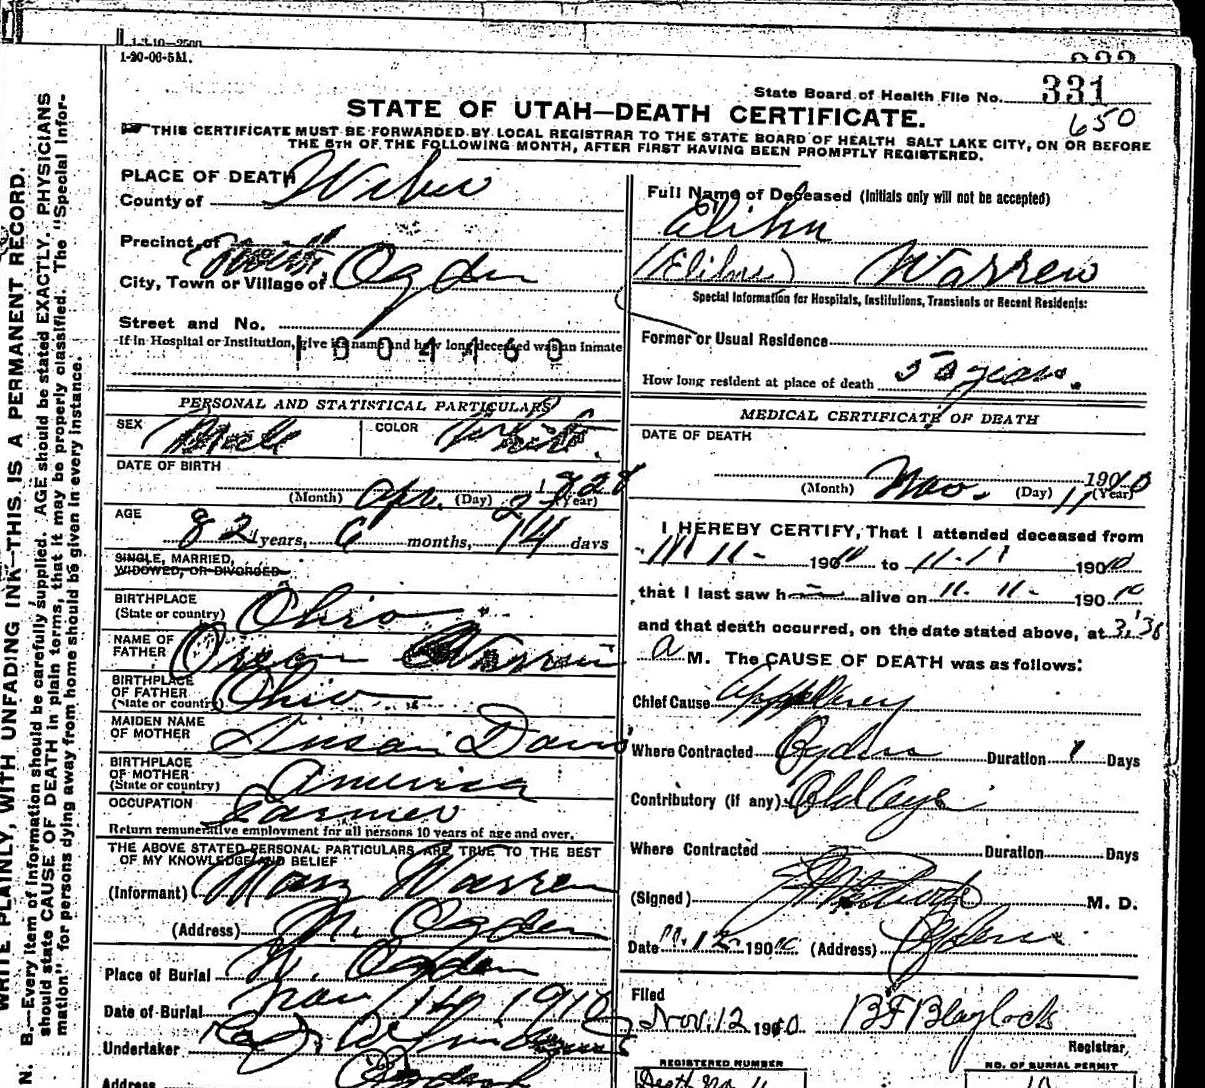 1-3-10-2500
1-20-06-5M.
333
State Board of Health File No. 331
650
STATE OF UTAH—DEATH CERTIFICATE.
THIS CERTIFICATE MUST BE FORWARDED BY LOCAL REGISTRAR TO THE STATE BOARD OF HEALTH SALT LAKE CITY, ON OR BEFORE
THE 5TH OF THE FOLLOWING MONTH, AFTER FIRST HAVING BEEN PROMPTLY REGISTERED.
WRITE PLAINLY, WITH UNFADING INK—THIS IS A PERMANENT RECORD.
N. B.—Every item of information should be carefully supplied. AGE should be stated EXACTLY. PHYSICIANS
should state CAUSE OF DEATH in plain terms, that it may be properly classified. The "Special Infor-
mation" for persons dying away from home should be given in every instance.
PLACE OF DEATH
County of Weber
Precinct of
City, Town or Village of North Ogden
Street and No.
If in Hospital or Institution, give its name and how long deceased was an inmate
1004460
PERSONAL AND STATISTICAL PARTICULARS
SEX Male COLOR White
DATE OF BIRTH
(Month) Apr. (Day) 27 (Year) 1828
AGE
82 years, 6 months, 14 days
SINGLE, MARRIED,
WIDOWED, OR DIVORCED
BIRTHPLACE
(State or country) Ohio
NAME OF
FATHER Warren
BIRTHPLACE
OF FATHER
(State or country) Ohio
MAIDEN NAME
OF MOTHER Susan Davis
BIRTHPLACE
OF MOTHER
(State or country) America
OCCUPATION Farmer
Return remunerative employment for all persons 10 years of age and over.
THE ABOVE STATED PERSONAL PARTICULARS ARE TRUE TO THE BEST
OF MY KNOWLEDGE AND BELIEF
(Informant) Mary Warren
(Address) N. Ogden
Place of Burial N. Ogden
Date of Burial Nov 14 1910
Undertaker
Address
Full Name of Deceased (Initials only will not be accepted)
Elihu
(Elihu) Warren
Special Information for Hospitals, Institutions, Transients or Recent Residents:
Former or Usual Residence
How long resident at place of death 50 years.
MEDICAL CERTIFICATE OF DEATH
DATE OF DEATH
(Month) Nov. (Day) 11 1910 (Year)
I HEREBY CERTIFY, That I attended deceased from
11 11 - 1910 to 11-11 1910
that I last saw h alive on 11. 11 - 1910
and that death occurred, on the date stated above, at 3:38
a M. The CAUSE OF DEATH was as follows:
Chief Cause
Where Contracted Ogden Duration 1 Days
Contributory (if any) Old Age
Where Contracted Duration Days
(Signed) M. D.
Date 11.12 1910 (Address) Ogden
Filed
Nov. 12 1910 BF Blaylock
Registrar,
REGISTERED NUMBER
NO. OF BURIAL PERMIT
Death No. 11